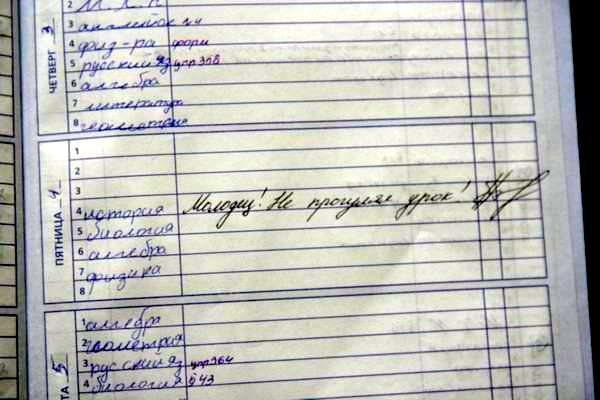 2 М.Х.К
3 английск
4 физ-ра форм
5 русский яз упр 308
6 алгебра
7 литература
8 геометрия
ЧЕТВЕРГ 3
1
2
3
4 история Молодец! Не прогулял урок!
5 биология
6 алгебра
7 физика
8
ПЯТНИЦА 4
1 алгебра
2 геометрия
3 русский яз упр 364
4 биология § 43
ТА 5